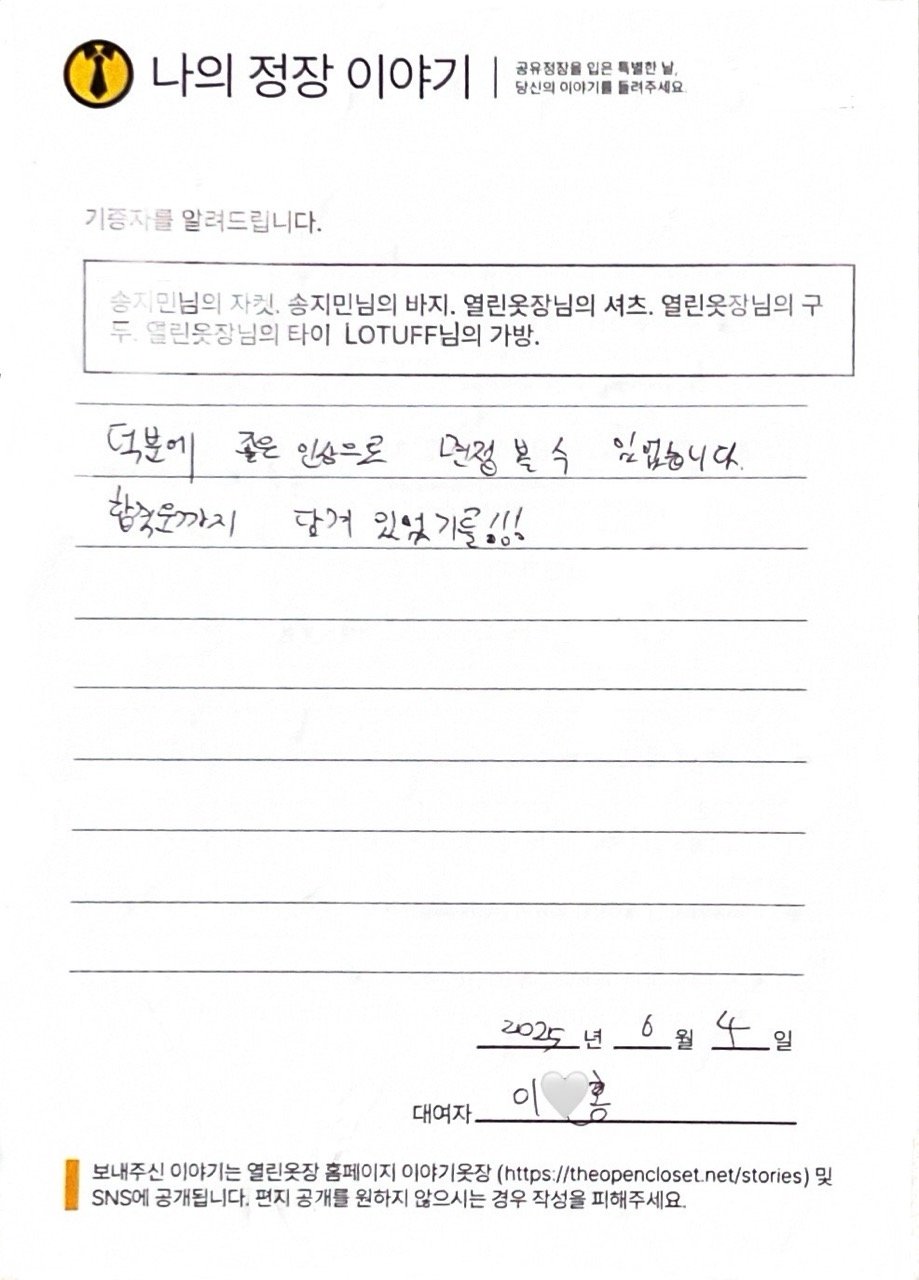 나의 정장 이야기
공유정장을 입은 특별한 날,
당신의 이야기를 들려주세요.
기증자를 알려드립니다.
송지민님의 자켓. 송지민님의 바지. 열린옷장님의 셔츠. 열린옷장님의 구
두. 열린옷장님의 타이 LOTUFF님의 가방.
덕분에 좋은 인상으로 면접 볼 수 있었습니다.
합격운까지 담겨 있었기를!!!
2025 년 6 월 4 일
대여자 이 홍
보내주신 이야기는 열린옷장 홈페이지 이야기옷장 (https://theopencloset.net/stories) 및
SNS에 공개됩니다. 편지 공개를 원하지 않으시는 경우 작성을 피해주세요.